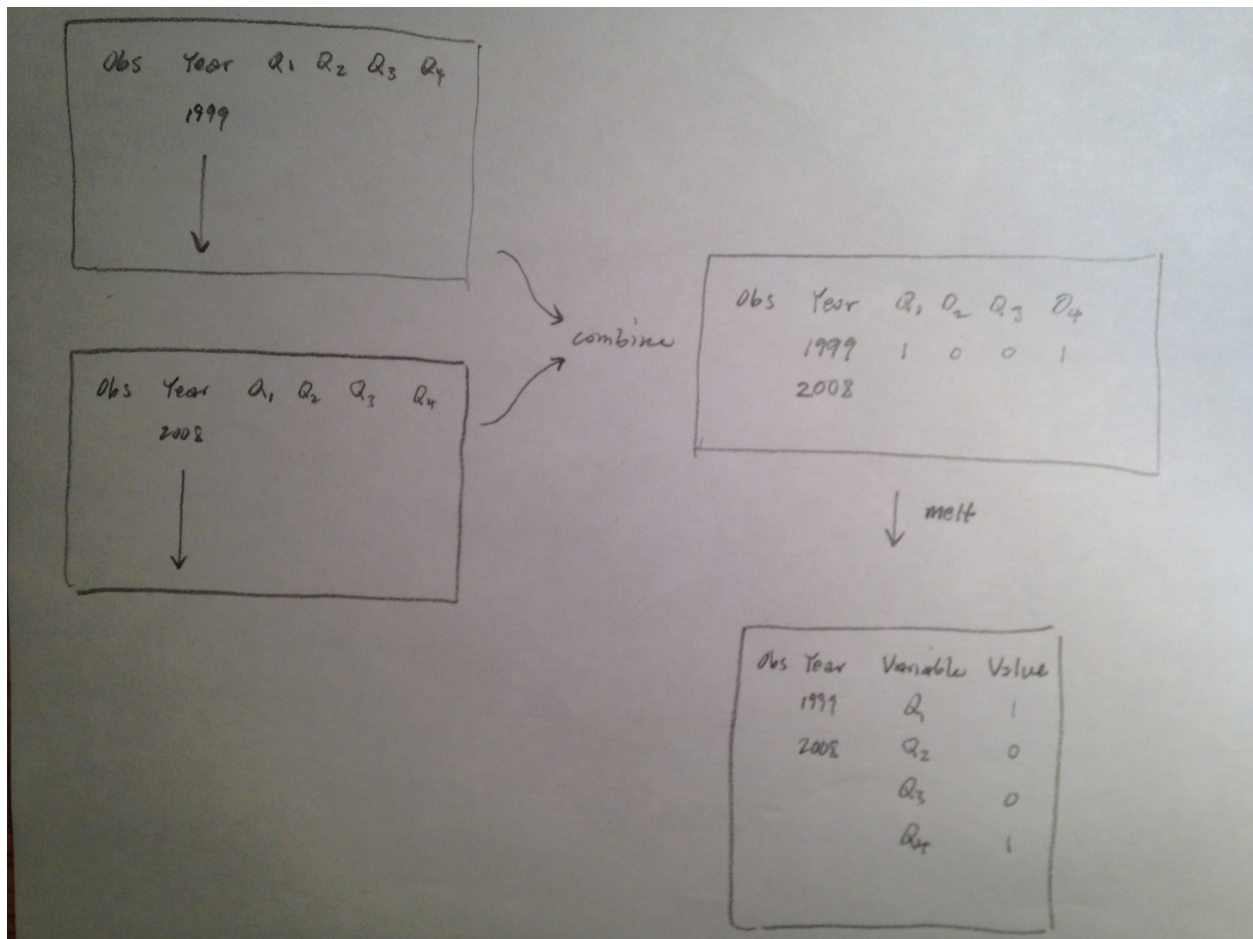 Obs Year Q1 Q2 Q3 Q4
1999
Obs Year Q1 Q2 Q3 Q4
2008
combine
Obs Year Q1 Q2 Q3 Q4
1999 1 0 0 1
2008
melt
Obs Year Variable Value
1999 Q1 1
2008 Q2 0
Q3 0
Q4 1